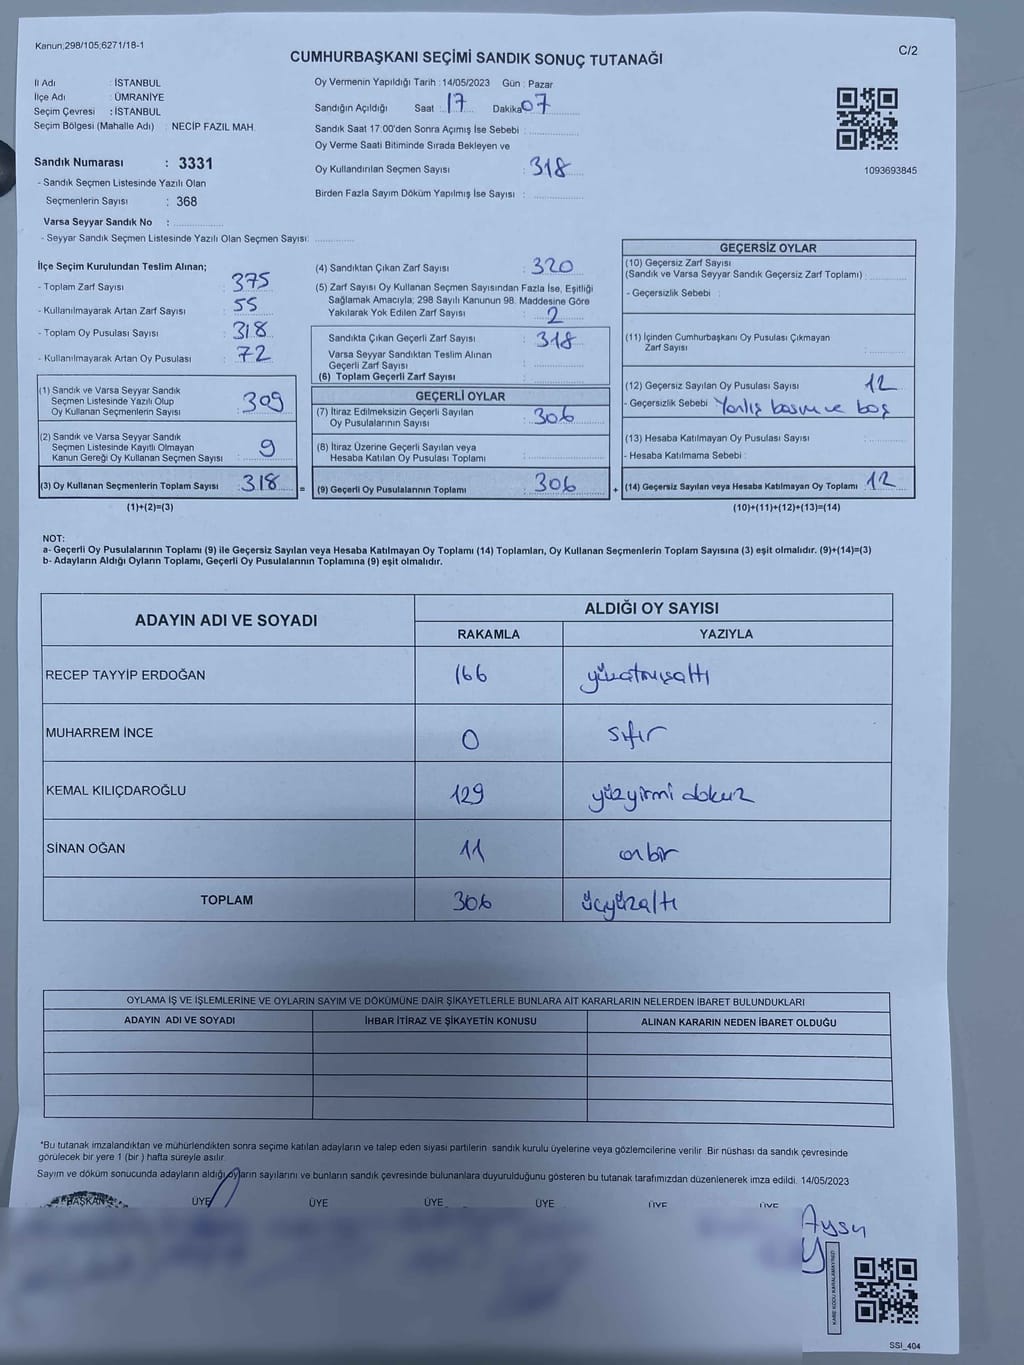 Kanun;298/105;6271/18-1
C/2
CUMHURBAŞKANI SEÇİMİ SANDIK SONUÇ TUTANAĞI
İl Adı : İSTANBUL
İlçe Adı : ÜMRANİYE
Seçim Çevresi : İSTANBUL
Seçim Bölgesi (Mahalle Adı) : NECİP FAZIL MAH.
Sandık Numarası : 3331
- Sandık Seçmen Listesinde Yazılı Olan
Seçmenlerin Sayısı : 368
Varsa Seyyar Sandık No :
- Seyyar Sandık Seçmen Listesinde Yazılı Olan Seçmen Sayısı:
Oy Vermenin Yapıldığı Tarih : 14/05/2023 Gün : Pazar
Sandığın Açıldığı Saat : 17 Dakika 07
Sandık Saat 17:00'den Sonra Açımış İse Sebebi :
Oy Verme Saati Bitiminde Sırada Bekleyen ve
Oy Kullandırılan Seçmen Sayısı : 318
Birden Fazla Sayım Döküm Yapılmış İse Sayısı :
1093693845
İlçe Seçim Kurulundan Teslim Alınan;
- Toplam Zarf Sayısı : 375
- Kullanılmayarak Artan Zarf Sayısı : 55
- Toplam Oy Pusulası Sayısı : 318
- Kullanılmayarak Artan Oy Pusulası : 72
(1) Sandık ve Varsa Seyyar Sandık
Seçmen Listesinde Yazılı Olup
Oy Kullanan Seçmenlerin Sayısı : 309
(2) Sandık ve Varsa Seyyar Sandık
Seçmen Listesinde Kayıtlı Olmayan
Kanun Gereği Oy Kullanan Seçmen Sayısı : 9
(3) Oy Kullanan Seçmenlerin Toplam Sayısı : 318
(1)+(2)=(3)
(4) Sandıktan Çıkan Zarf Sayısı : 320
(5) Zarf Sayısı Oy Kullanan Seçmen Sayısından Fazla İse, Eşitliği
Sağlamak Amacıyla; 298 Sayılı Kanunun 98. Maddesine Göre
Yakılarak Yok Edilen Zarf Sayısı : 2
Sandıkta Çıkan Geçerli Zarf Sayısı : 318
Varsa Seyyar Sandıktan Teslim Alınan
Geçerli Zarf Sayısı :
(6) Toplam Geçerli Zarf Sayısı :
GEÇERLİ OYLAR
(7) İtiraz Edilmeksizin Geçerli Sayılan
Oy Pusulalarının Sayısı : 306
(8) İtiraz Üzerine Geçerli Sayılan veya
Hesaba Katılan Oy Pusulası Toplamı :
= (9) Geçerli Oy Pusulalarının Toplamı : 306
GEÇERSİZ OYLAR
(10) Geçersiz Zarf Sayısı
(Sandık ve Varsa Seyyar Sandık Geçersiz Zarf Toplamı) :
- Geçersizlik Sebebi :
(11) İçinden Cumhurbaşkanı Oy Pusulası Çıkmayan
Zarf Sayısı :
(12) Geçersiz Sayılan Oy Pusulası Sayısı : 12
- Geçersizlik Sebebi : Yanlış basım ve boş
(13) Hesaba Katılmayan Oy Pusulası Sayısı :
- Hesaba Katılmama Sebebi :
+ (14) Geçersiz Sayılan veya Hesaba Katılmayan Oy Toplamı : 12
(10)+(11)+(12)+(13)=(14)
NOT:
a- Geçerli Oy Pusulalarının Toplamı (9) ile Geçersiz Sayılan veya Hesaba Katılmayan Oy Toplamı (14) Toplamları, Oy Kullanan Seçmenlerin Toplam Sayısına (3) eşit olmalıdır. (9)+(14)=(3)
b- Adayların Aldığı Oyların Toplamı, Geçerli Oy Pusulalarının Toplamına (9) eşit olmalıdır.
ADAYIN ADI VE SOYADI ALDIĞI OY SAYISI
RAKAMLA YAZIYLA
RECEP TAYYİP ERDOĞAN 166 yüzatmışaltı
MUHARREM İNCE 0 sıfır
KEMAL KILIÇDAROĞLU 129 yüzyirmi dokuz
SİNAN OĞAN 11 onbir
TOPLAM 306 üçyüzaltı
OYLAMA İŞ VE İŞLEMLERİNE VE OYLARIN SAYIM VE DÖKÜMÜNE DAİR ŞİKAYETLERLE BUNLARA AİT KARARLARIN NELERDEN İBARET BULUNDUKLARI
ADAYIN ADI VE SOYADI İHBAR İTİRAZ VE ŞİKAYETİN KONUSU ALINAN KARARIN NEDEN İBARET OLDUĞU
*Bu tutanak imzalandıktan ve mühürlendikten sonra seçime katılan adayların ve talep eden siyasi partilerin sandık kurulu üyelerine veya gözlemcilerine verilir. Bir nüshası da sandık çevresinde
görülecek bir yere 1 (bir) hafta süreyle asılır.
Sayım ve döküm sonucunda adayların aldığı oyların sayılarını ve bunların sandık çevresinde bulunanlara duyurulduğunu gösteren bu tutanak tarafımızdan düzenlenerek imza edildi. 14/05/2023
BAŞKAN ÜYE ÜYE ÜYE ÜYE ÜYE ÜYE
Aysu
KARE KODU KARALAMAYINIZ!
SSI_404